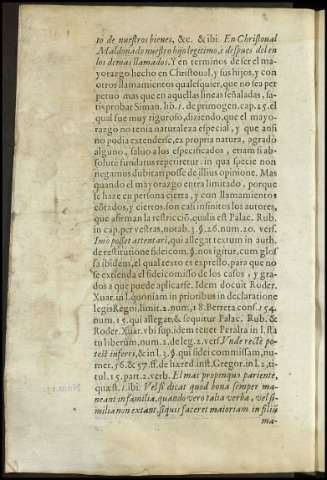 to de nuestros bienes, &c. & ibi. En Christoual
Maldonado nuestro hijo legitimo, e despues del en
los demas llamados. Y en terminos de ser el ma
yorazgo hecho en Christoual, y sus hijos, y con
otros llamamientos qualesquier, que no sea per
petuo mas que en aquellas lineas señaladas, sa-
tis probat Siman. lib. 1. de primogen. cap. 25. el
qual fue muy riguroso, diziendo, que el mayo-
razgo no tenia naturaleza especial, y que ansi
no podia extenderse, ex propria natura, a grado
alguno, saluo a los especificados, etiam si ab-
solutè fundatus reperiretur. in qua specie non
negamus dubitari posse de illius opinione. Mas
quando el mayorazgo entra limitado, porque
se haze en persona cierta, y con llamamientos
cõtados, y ciertos, son casi infinitos los autores,
que afirman la restricciõ, qualis est Palac. Rub.
in cap. per vestras, notab. 3. §. 26. num. 20. vers.
Imo posset attentari, qui allegat textum in auth.
de restitutione fideicom. §. nos igitur, cum glos
sa ibidem, el qual texto es expresso, para que no
se extienda el fideicomisso de los casos, y gra-
dos a que puede aplicarse. Idem docuit Roder.
Xuar. in l. quoniam in prioribus in declaratione
legis Regni, limit. 2. num. 18. Berrera cons. 154.
num. 15. qui allegat, & sequitur Palac. Rub. &
Roder. Xuar. vbi sup. idem tenet Peralta in l. si ita
tu liberum, num. 2. de leg. 2. vers. Vnde rectè po-
test inferri, & in l. 3. §. qui fideicommissam, nu-
mer. 56. & 57. ff. de hæred. inst. Gregor. in l. 2. ti-
tul. 15. part. 2. verb. El mas propinquo pariente,
quæst. 1. ibi. Vel si dicat quod bona semper ma-
neant in familia, quando vero talia verba, vel si-
milia non extant, si quis faceret maioriam in filiũ
ma-